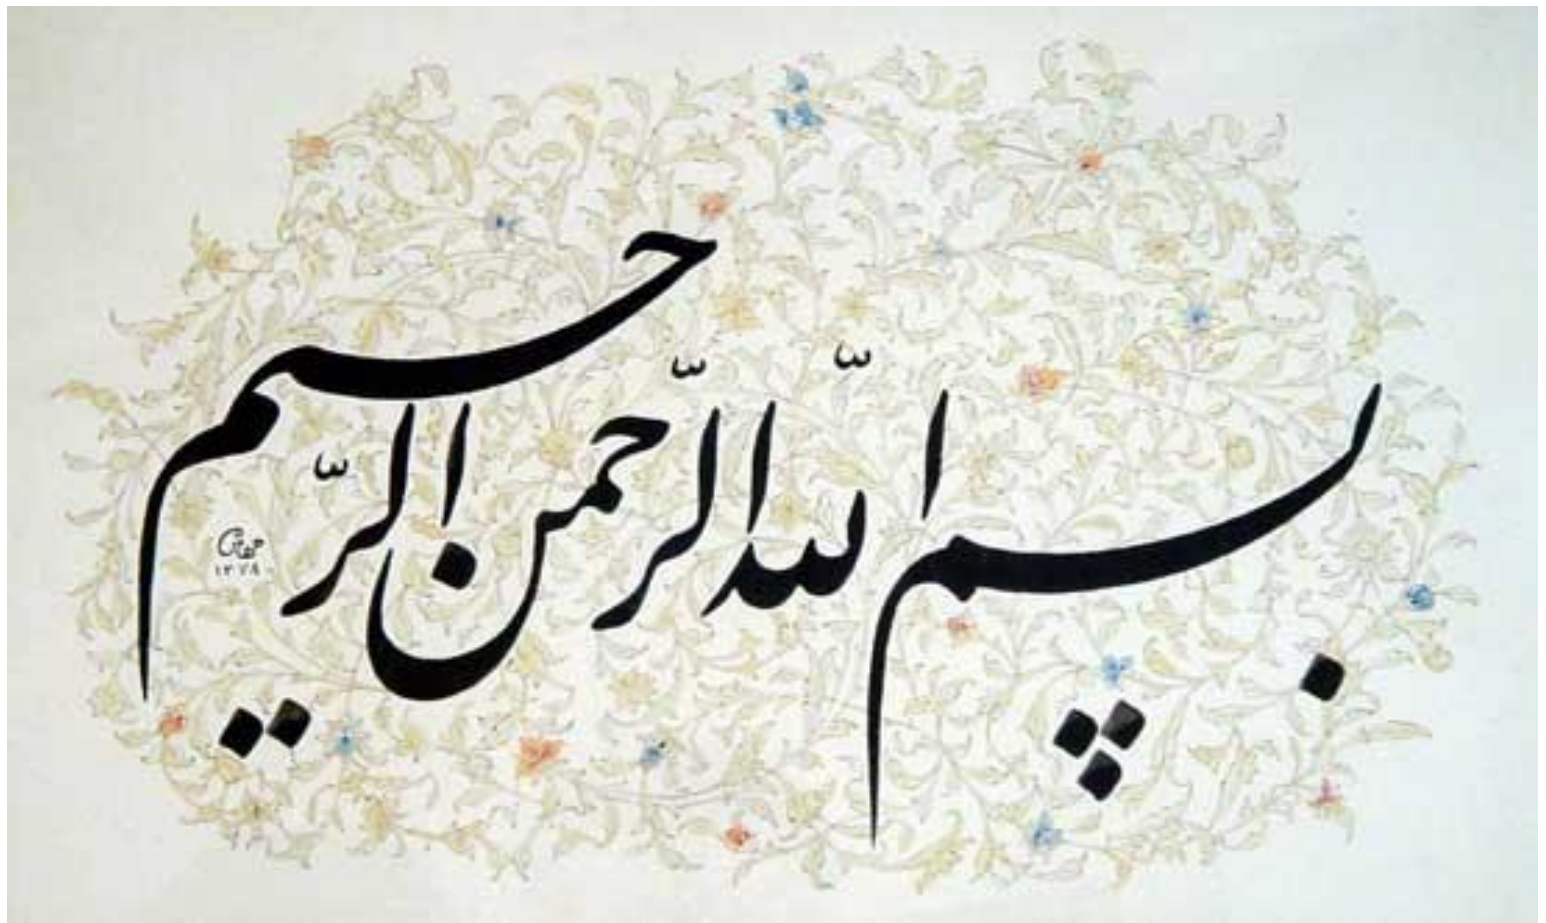 بسم الله الرّحمن الرّحیم
۱۳۷۸